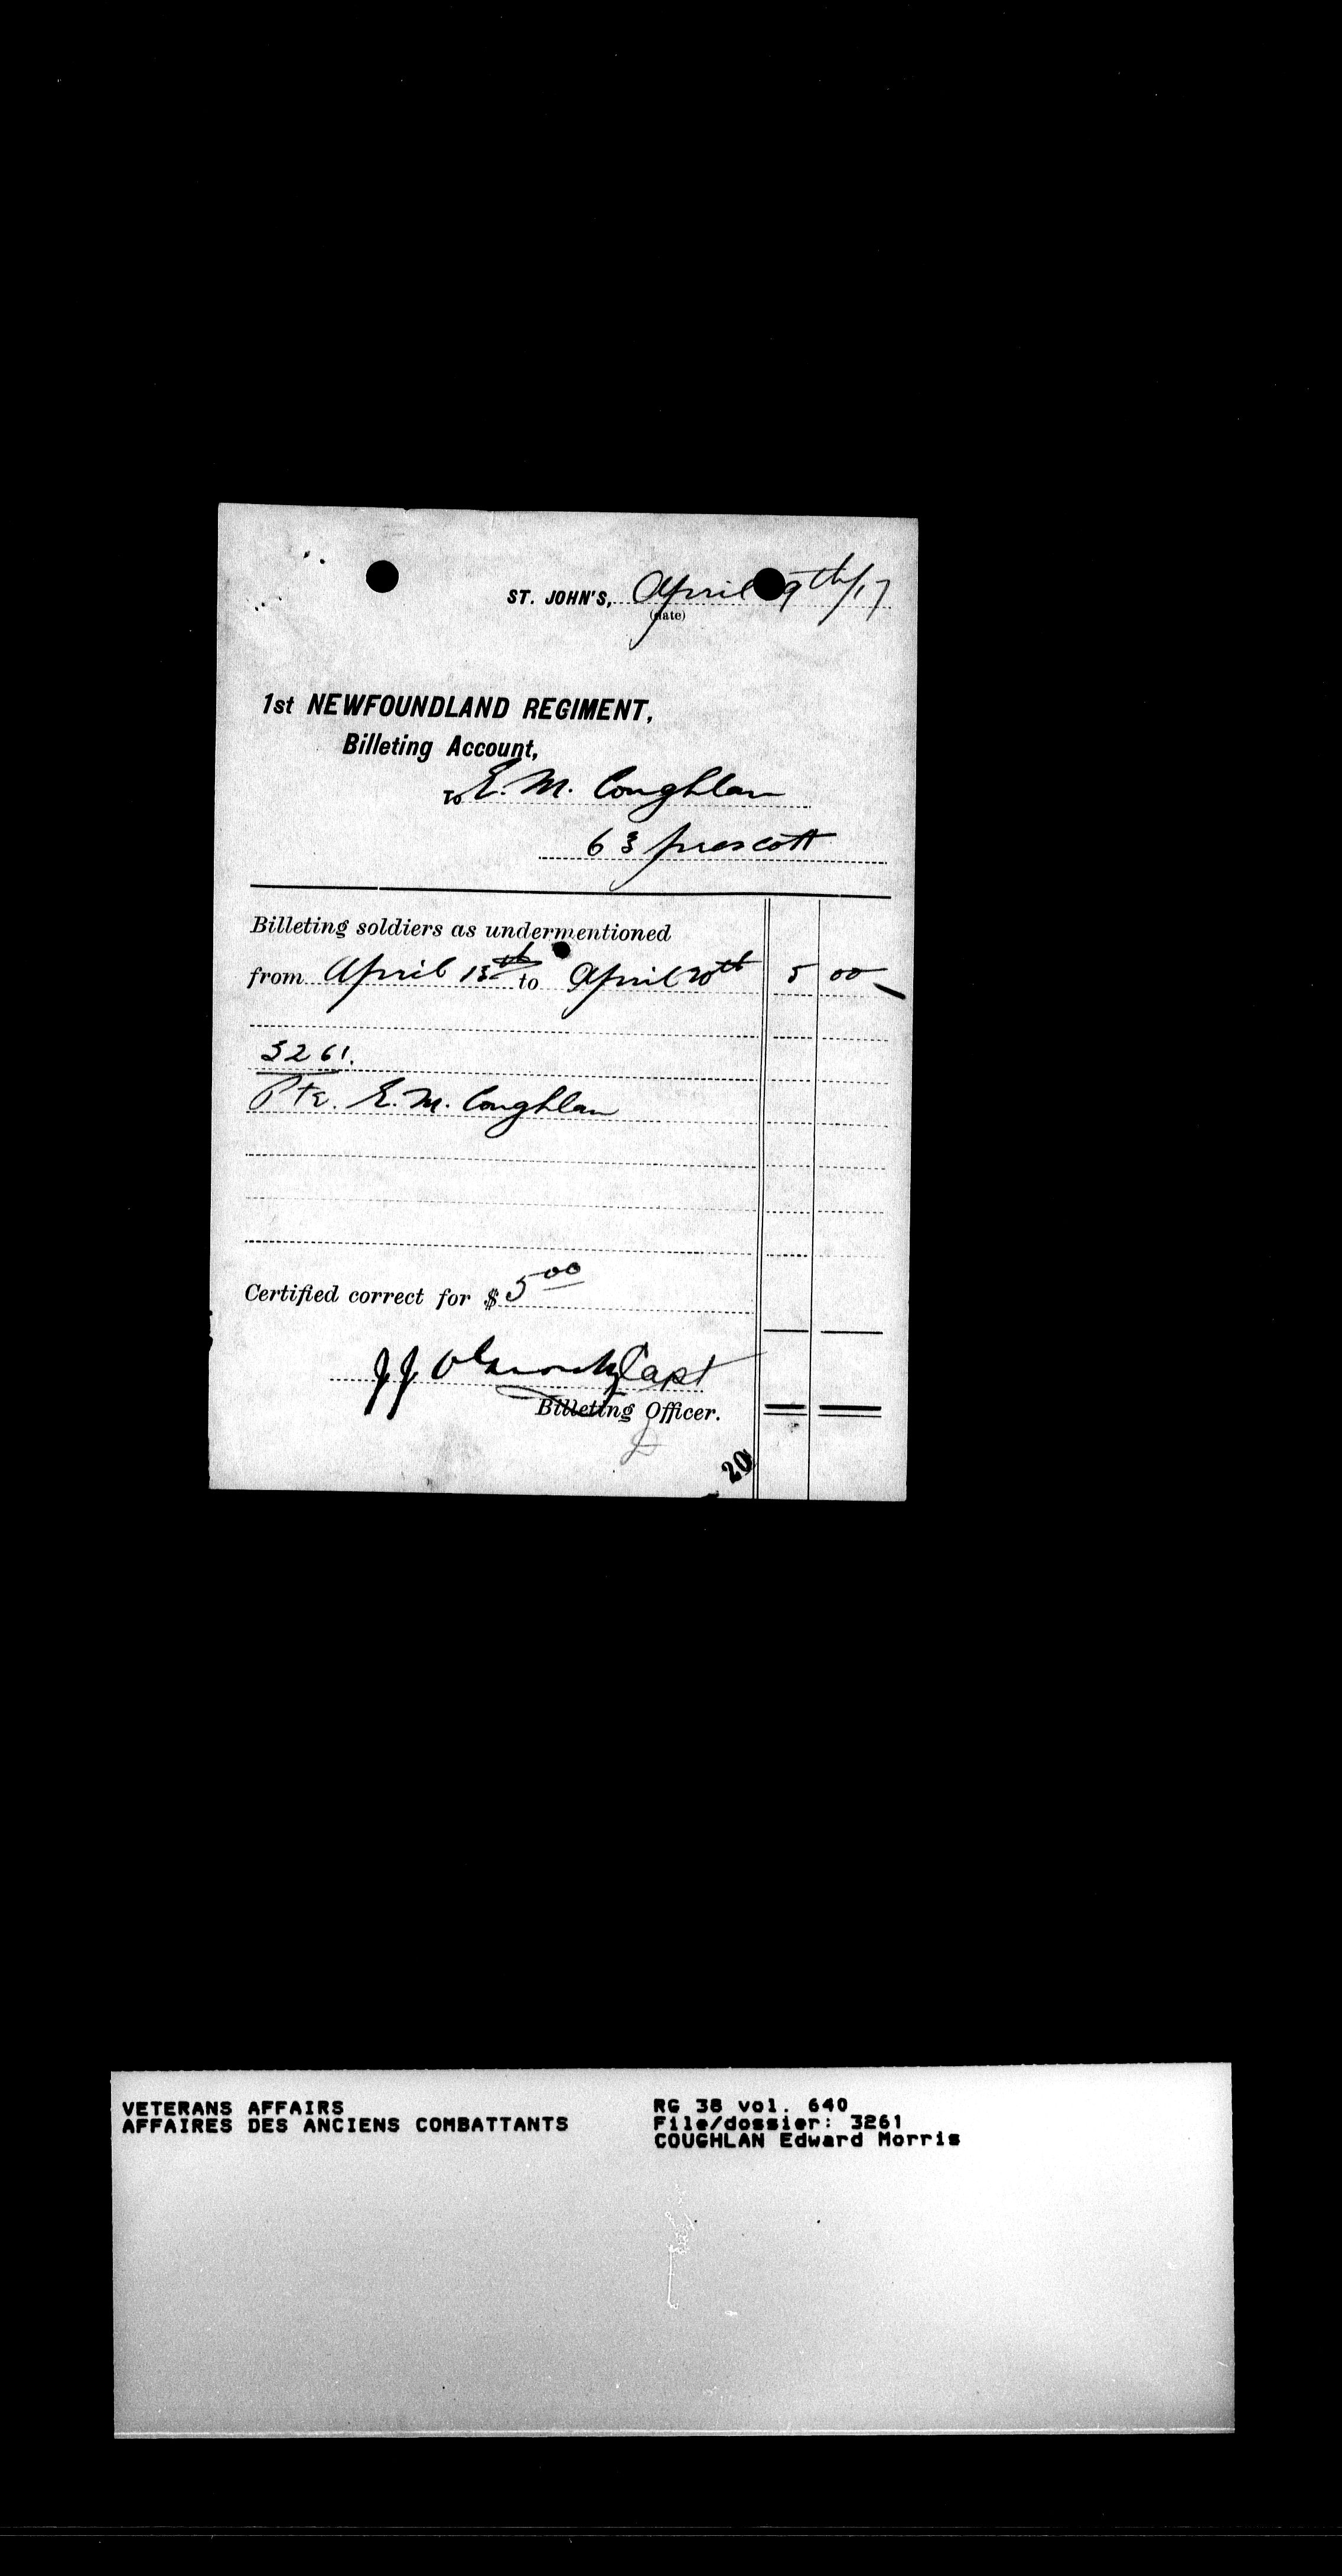 ST. JOHN'S, April 9th/17
(date)
1st NEWFOUNDLAND REGIMENT,
Billeting Account,
To E. M. Coughlan
63 prescott
Billeting soldiers as undermentioned
from April 13th to April 20th 5 00
3261.
Pte. E. M. Coughlan
Certified correct for $ 5 00
J J Capt
Billeting Officer.
20
VETERANS AFFAIRS
AFFAIRES DES ANCIENS COMBATTANTS
RG 38 vol. 640
File/dossier: 3261
COUGHLAN Edward Morris